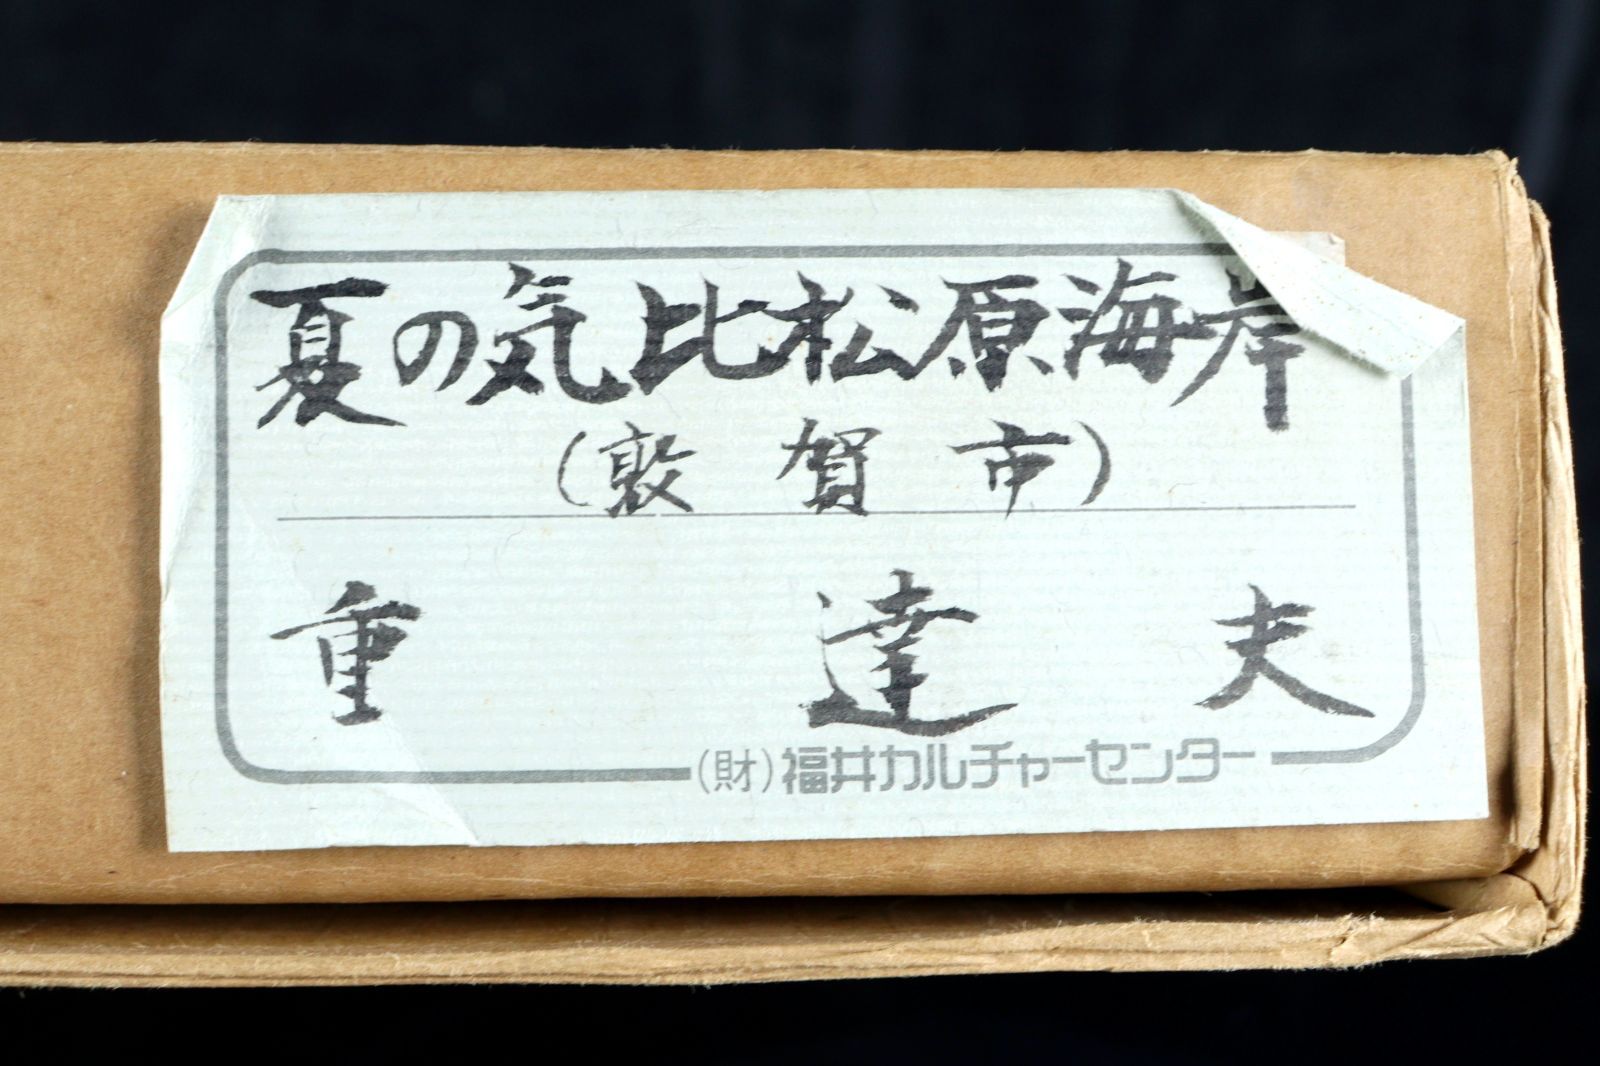 夏の気比松原海岸
(敦賀市)
重 達夫
(財)福井カルチャーセンター